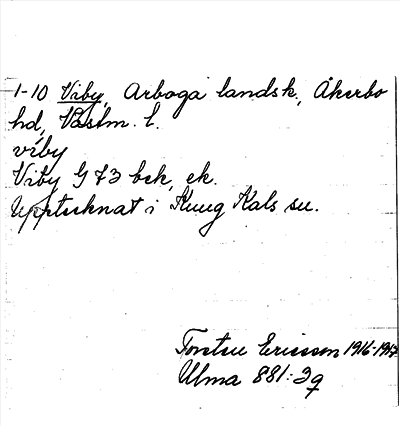 1-10 Viby, Arboga landsk., Åkerbo
hd, Västm. l.
viby
Viby G 73 bek, ek.
Upptecknat i Kung Kals su.
Torsten Ericsson 1916-1917
Ulma 881:3